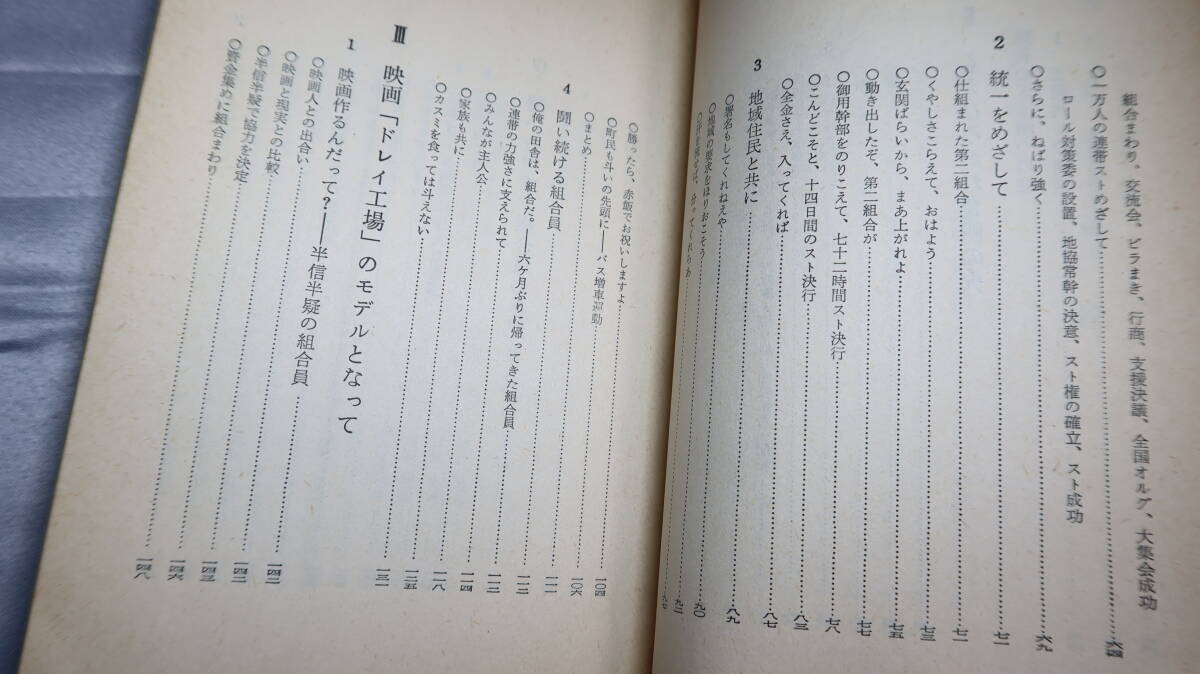 組合まわり、交流会、ビラまき、行商、支援決議、全国オルグ、大集会成功
○一万人の連帯ストめざして……六四
ロール対策委の設置、地協常幹の決意、スト権の確立、スト成功
○さらに、ねばり強く……六九
2 統一をめざして……七一
○仕組まれた第二組合……七一
○くやしさこらえて、おはよう……七三
○玄関ばらいから、まあ上がれよ……七五
○動き出したぞ、第二組合が……七七
○御用幹部をのりこえて、七十二時間スト決行……七八
○こんどこそと、十四日間のスト決行……八三
○全金さえ、入ってくれば……八七
3 地域住民と共に……八九
○署名もしてくれねえや……九〇
○地域の要求をほりおこそう……九二
○汗を流せば、分ってくれらあ……九七
○勝ったら、赤飯でお祝いしますよ……一〇四
○町民も斗いの先頭に――バス増車運動……一〇六
○まとめ……一一一
4 闘い続ける組合員……一一二
○俺の田舎は、組合だ。――六ケ月ぶりに帰ってきた組合員……一一二
○連帯の力強さに支えられて……一一四
○みんなが主人公……一一八
○家族も共に……一二五
○カスミを食っては斗えない……一三一
Ⅲ 映画「ドレイ工場」のモデルとなって
1 映画作るんだって?――半信半疑の組合員……一四二
○映画人との出合い……一四二
○映画と現実との比較……一四三
○半信半疑で協力を決定……一四六
○資金集めに組合まわり……一四八